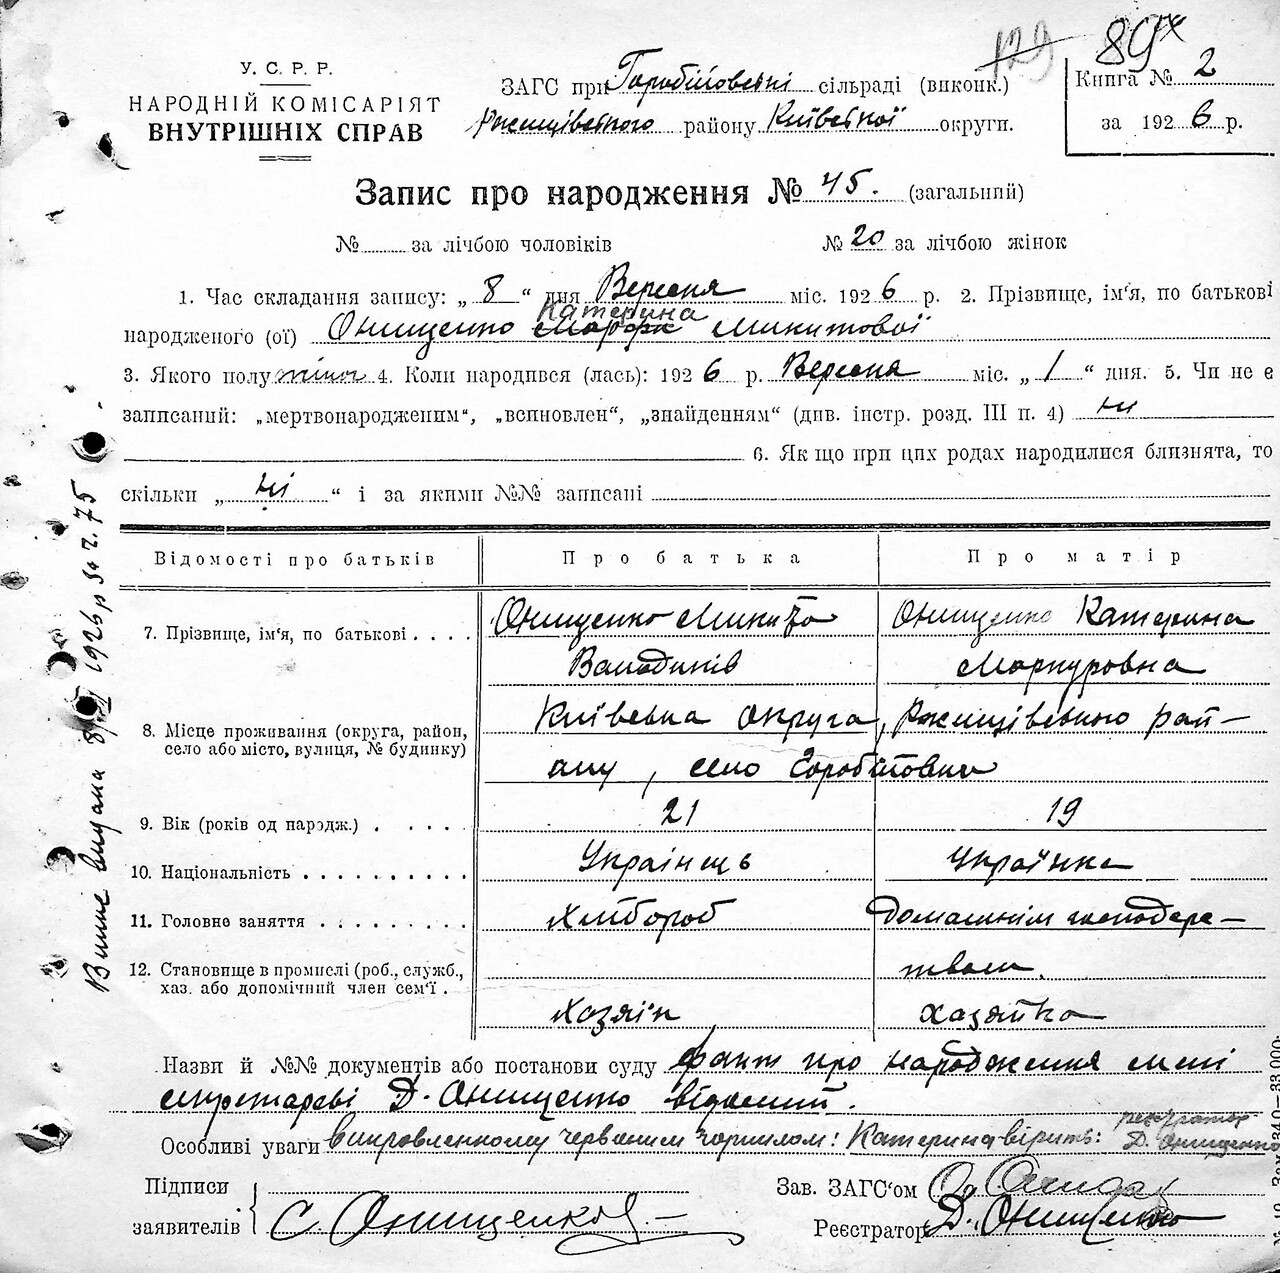 129 89
У. С. Р. Р.
НАРОДНІЙ КОМІСАРІЯТ
ВНУТРІШНІХ СПРАВ
ЗАГС при сільраді (виконк.)
Ржищівського району Київської округи.
Книга № 2
за 1926 р.
Запис про народження № 45. (загальний)
№ за лічбою чоловіків № 20 за лічбою жінок
1. Час складання запису: „8“ дня Вересня міс. 1926 р. 2. Прізвище, ім'я, по батькові
Катерина
народженого (ої) Онищенко Микитової
3. Якого полу жіноч 4. Коли народився (лась): 1926 р. Вересня міс. „1“ дня. 5. Чи не є
записаний: „мертвонародженим“, „вспновлен“, „знайденням“ (див. інстр. розд. III п. 4) ні
6. Як що при цих родах народилися близнята, то
скільки „ні“ і за якими №№ записані
Відомості про батьків Про батька Про матір
7. Прізвище, ім'я, по батькові . . . . Онищенко Микита Онищенко Катерина
Меркуровна
8. Місце проживання (округа, район, Київська округа, Ржищівського рай-
село або місто, вулиця, № будинку) ону, село
9. Вік (років од народж.) . . . . . 21 19
10. Національність . . . . . . . . . . Українець Українка
11. Головне заняття . . . . . . . . . Хлібороб Домашнім господарс-
12. Становище в промислі (роб., служб., твом.
хаз. або допомічний член сем'ї . Хозяін Хазяйка
Назви й №№ документів або постанови суду факт про народження мені
секретареві Д. Онищенко відомий.
Особливі уваги виправленному червоним чорнилом: Катерина вірить: реєстратор
Д. Онищенко
Підписи
заявителів С. Онищенко
Зав. ЗАГС'ом
Реєстратор Д. Онищенко
1926 р